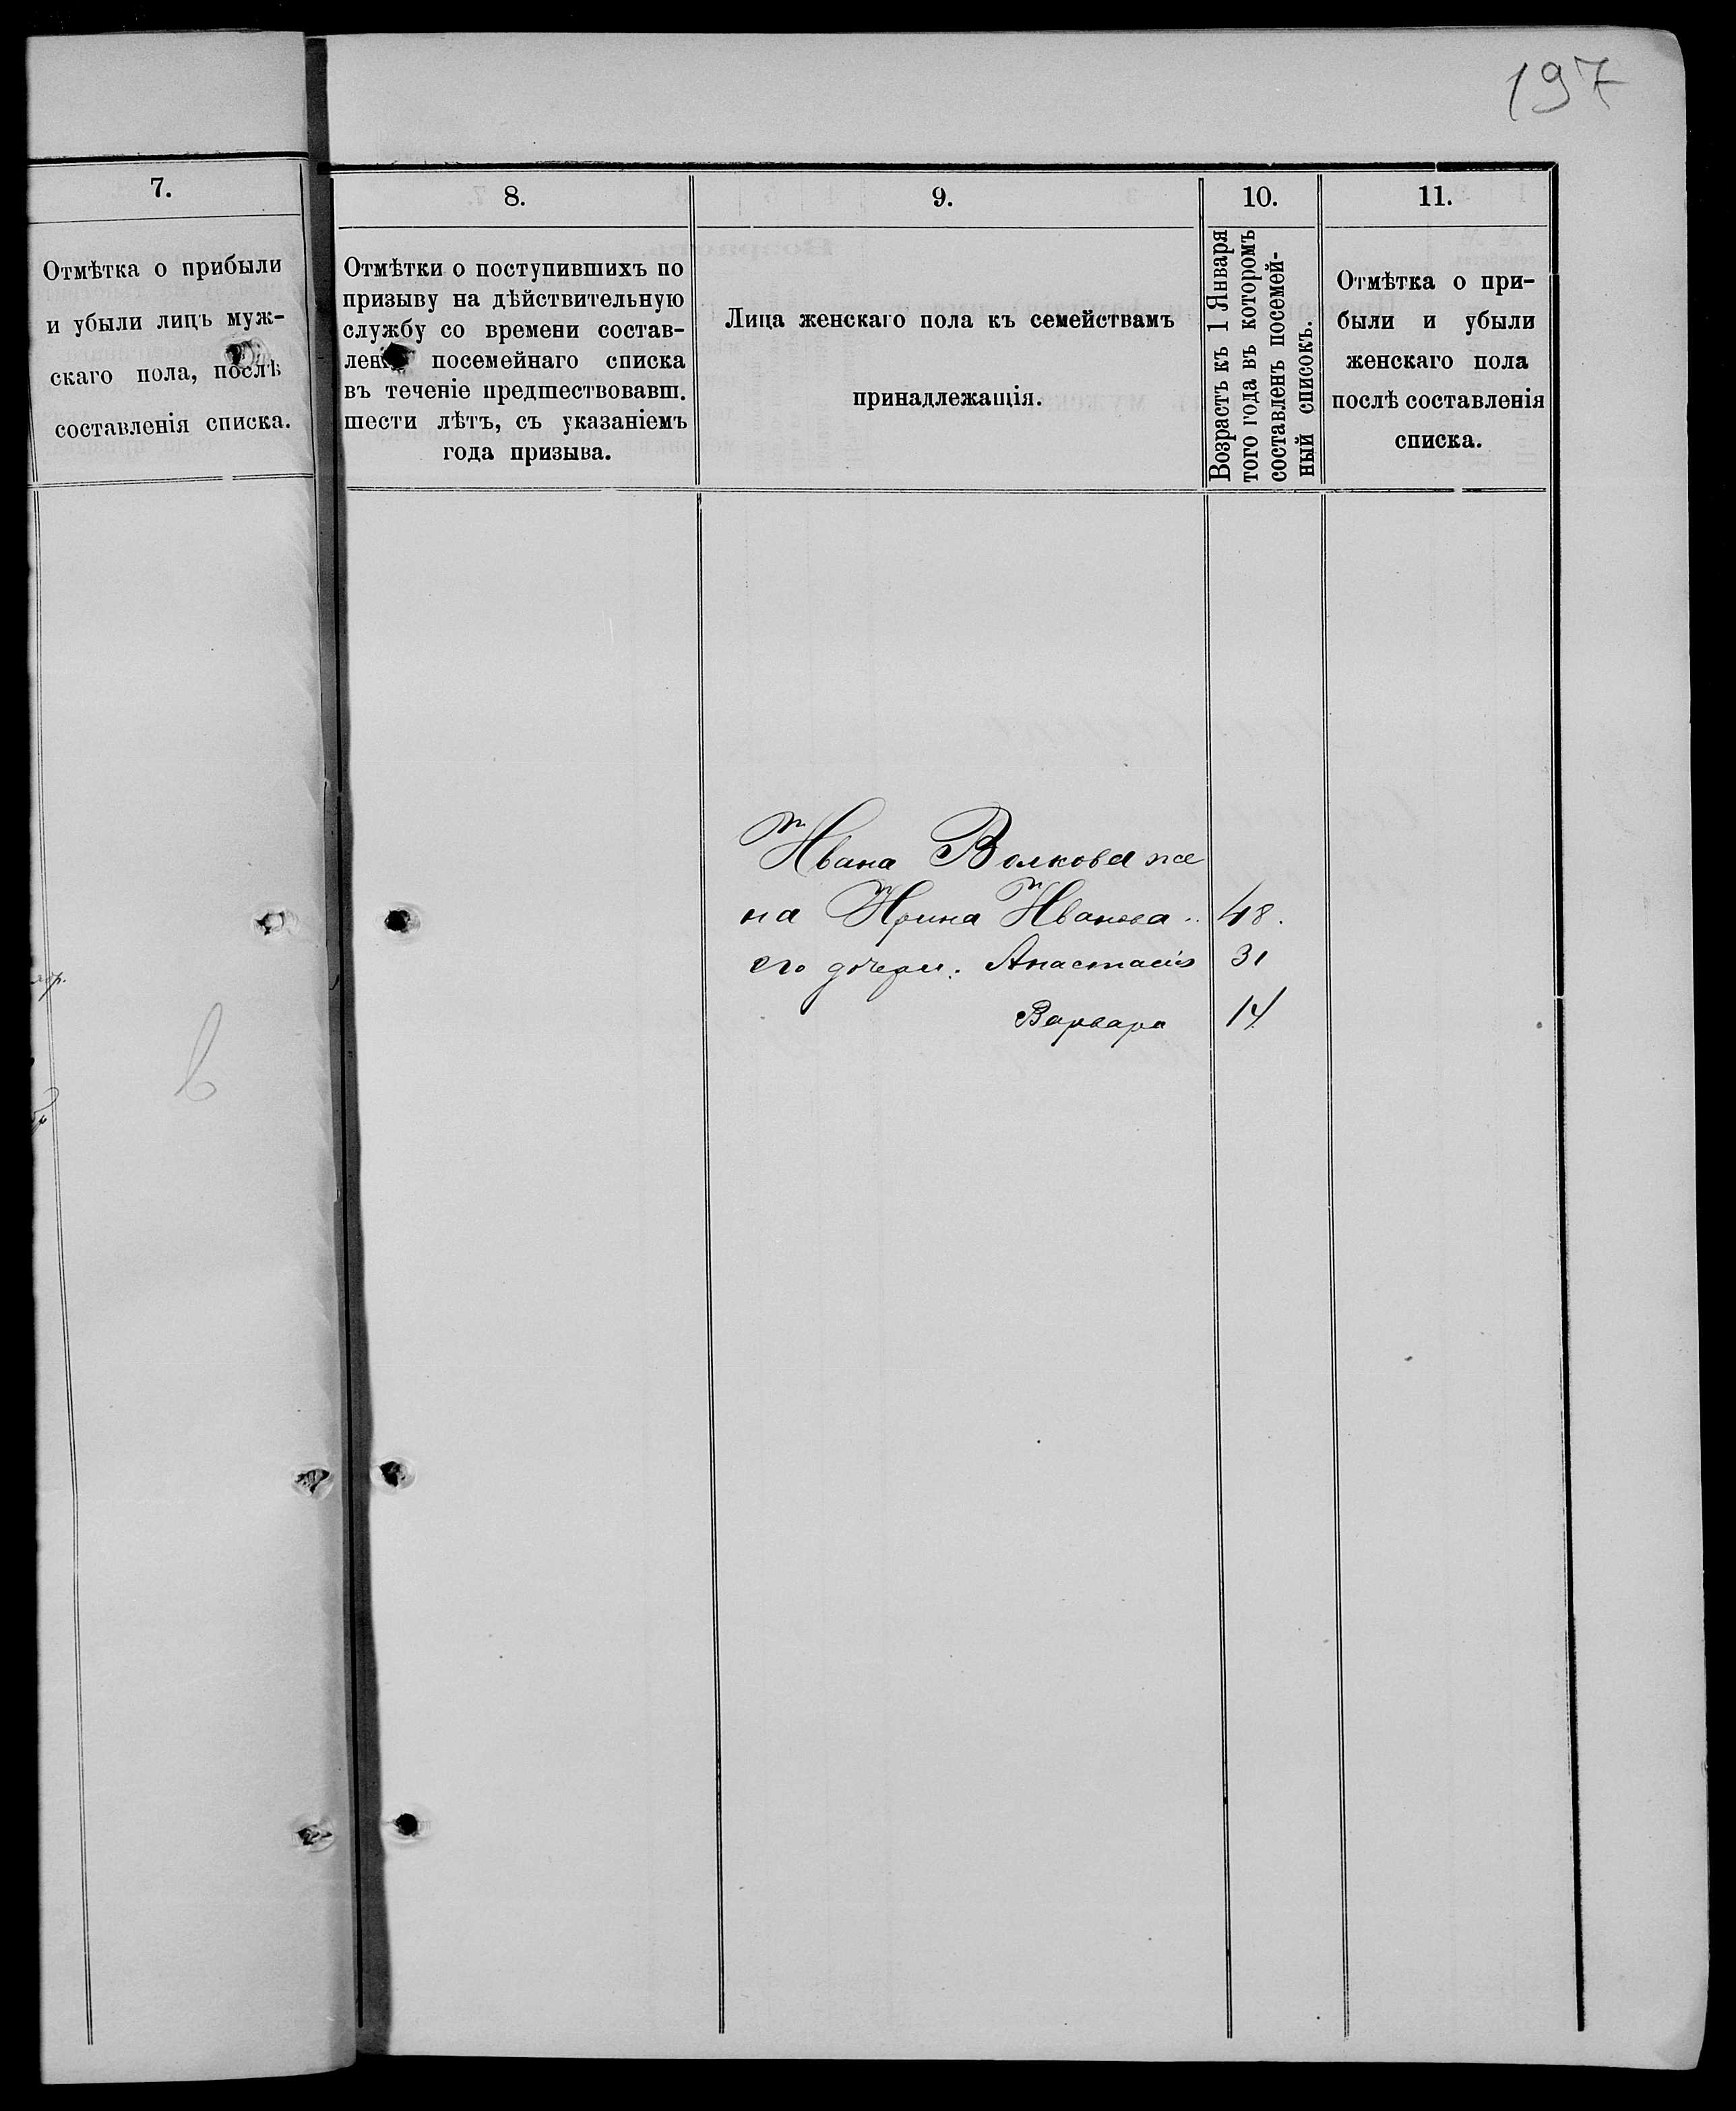 197
7.
Отмѣтка о прибыли
и убыли лицъ муж-
скаго пола, послѣ
составленія списка.
в
8.
Отмѣтки о поступившихъ по
призыву на дѣйствительную
службу со времени состав-
посемейнаго списка
въ теченіе предшествовавш.
шести лѣтъ, съ указаніемъ
года призыва.
9.
Лица женскаго пола къ семействамъ
принадлежащія.
10.
Возрастъ къ 1 Января
того года въ которомъ
составленъ посемей-
ный списокъ.
11.
Отмѣтка о при-
были и убыли
женскаго пола
послѣ составленія
списка.
Ивана Волкова же
на Ирина Иванова 48.
его дочери: Анастасія 31
Варвара 14